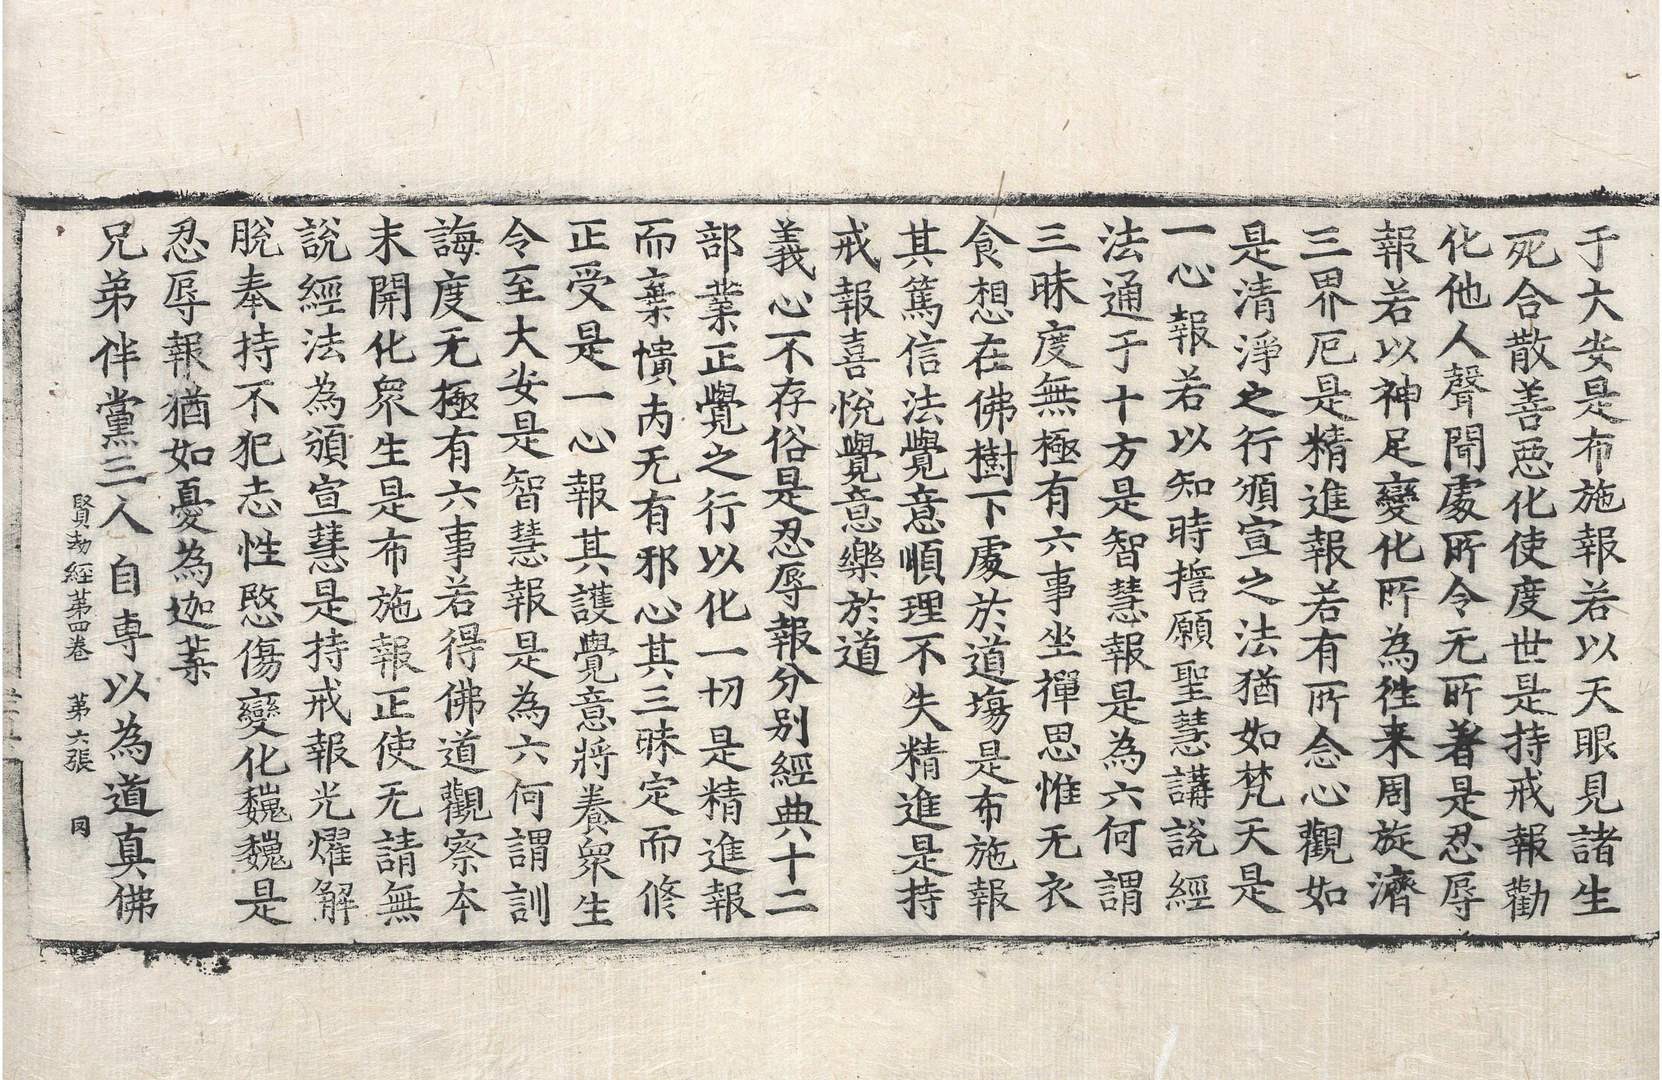 于大安是布施報若以天眼見諸生
死合散善惡化使度世是持戒報勸
化他人聲聞處所令无所著是忍辱
報若以神足變化所為徃来周旋濟
三界厄是精進報若有所念心觀如
是清淨之行頒宣之法猶如梵天是
一心報若以知時擔願聖慧講說經
法通于十方是智慧報是為六何謂
三昧度無極有六事坐禪思惟无衣
食想在佛樹下處於道場是布施報
其篤信法覺意順理不失精進是持
戒報喜悅覺意樂於道
義心不存俗是忍辱報分別經典十二
部業正覺之行以化一切是精進報
而棄憒内无有邪心其三昧定而修
正受是一心報其護覺意將養衆生
令至大安是智慧報是為六何謂訓
誨度无極有六事若得佛道觀察本
末開化衆生是布施報正使无請無
說經法為頒宣慧是持戒報光燿解
脫奉持不犯志性愍傷變化巍巍是
忍辱報猶如憂為迦葉
兄弟伴黨三人自專以為道真佛
賢劫經苐四卷 苐六張 同